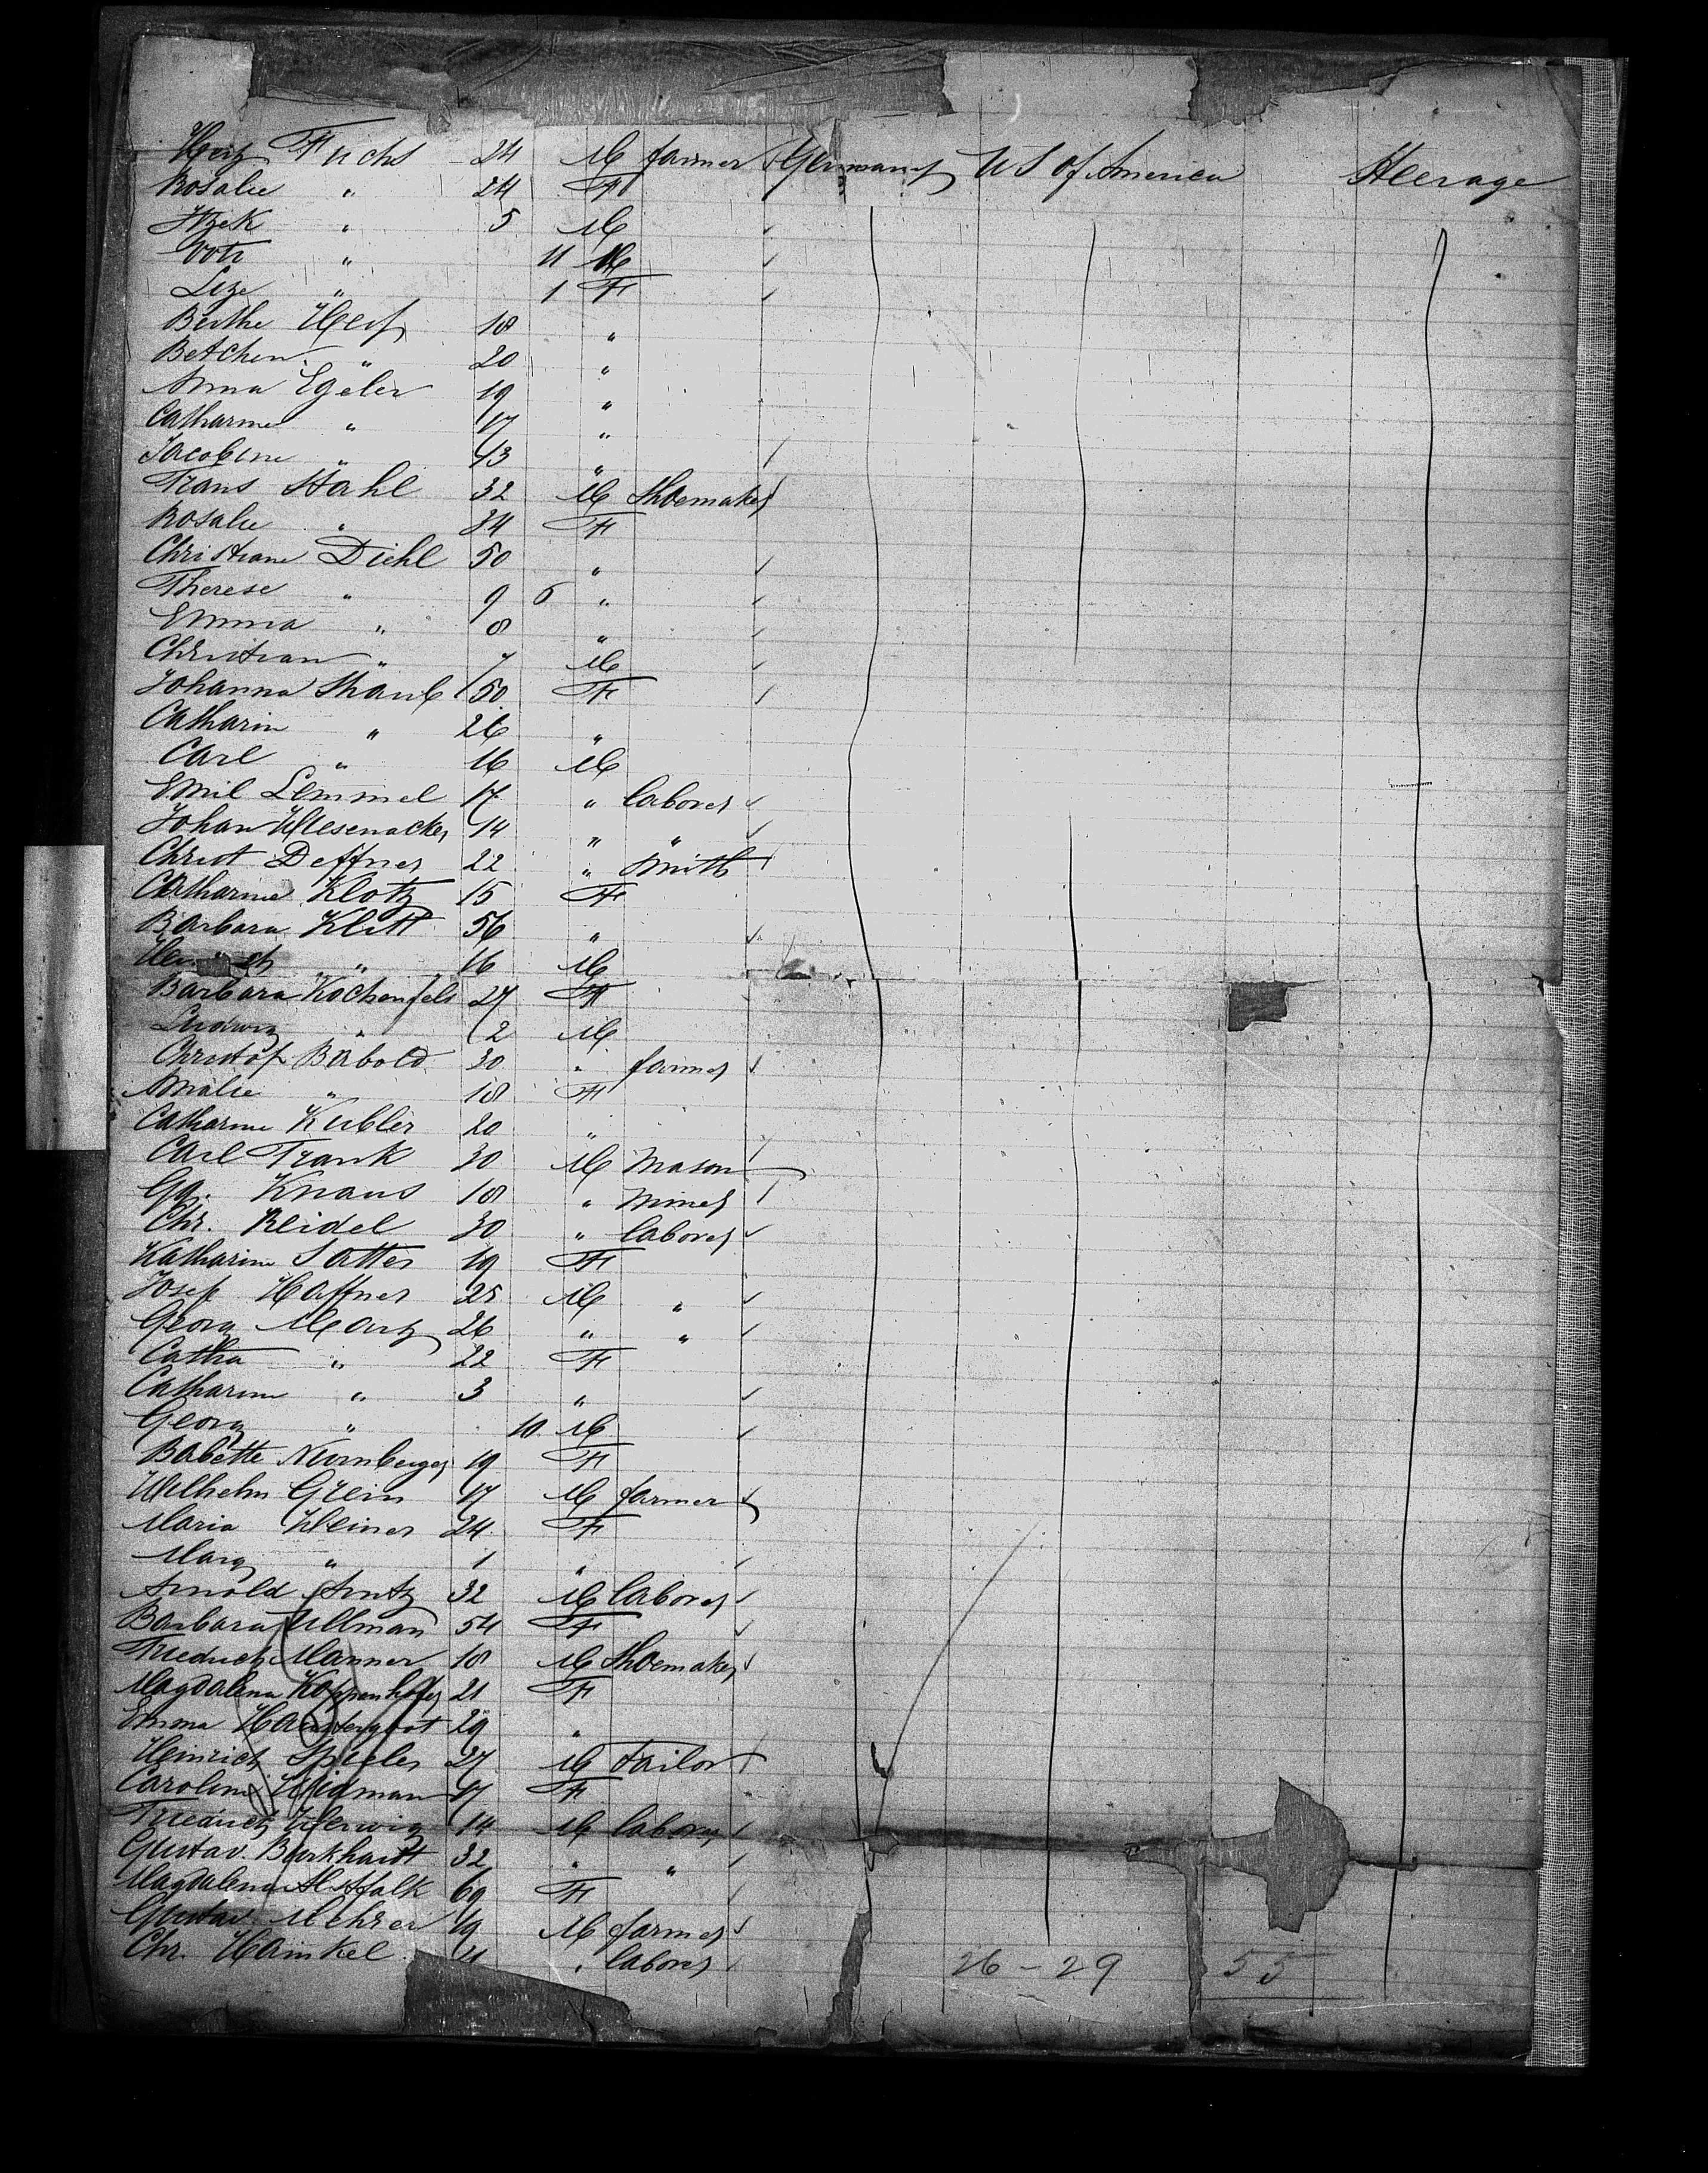 Herz Fuchs 24 M farmer Germany U S of America Steerage
Rosalie " 24 F
Itzek " 5 M
" 11 M
Lize " 1 F
Berthe Herf 18 "
Betchen " 20 "
Anna Egeler 19 "
Catharine " 17 "
Jacobine " 13 "
Frans Stahl 32 M Shoemaker
Rosalie " 34 F
Christiane Diehl 50 "
Therese " 9 6 "
Emma " 8 "
Christian " 7 M
Johanna Shaub 50 F
Catharin " 26 "
Carl " 16 M
Emil Lemmel 17 " laborer
Johan Wiesenacker 14 " "
Christ Deffner 22 " Smith
Catharine Klotz 15 F
Barbara Klett 56 "
" 16 M
Barbara Kochenfels 27 F
Ludwig " 2 M
Christof Bäbold 30 " farmer
Amalie " 18 F
Catharine Kubler 20 "
Carl Frank 30 M Mason
Gg. Knaus 18 " Miner
Chr. Reidel 30 " laborer
Katharine Satter 19 F
Josef Haffner 25 M "
Georg Marz 26 " "
Catha " 22 F
Catharine " 3 "
Georg " 10 M
Babette Nurnberger 19 F
Wilhelm Grein 17 M farmer
Maria Weiner 24 F
Marg " 1 "
Arnold Arntz 32 M laborer
Barbara Ullman 54 F
Friedrich Manner 18 M Shoemaker
Magdalena Koppenhofer 21 F
Emma 29 "
Heinrich Spieler 27 M Tailor
Caroline Widman 17 F
Friedrich Herwig 14 M laborer
Gustav. Burkhardt 32 " "
Magdalena 69 F
Gustav Mehrer 19 M farmer
Chr. Hainkel 21 " laborer
26 - 29 55